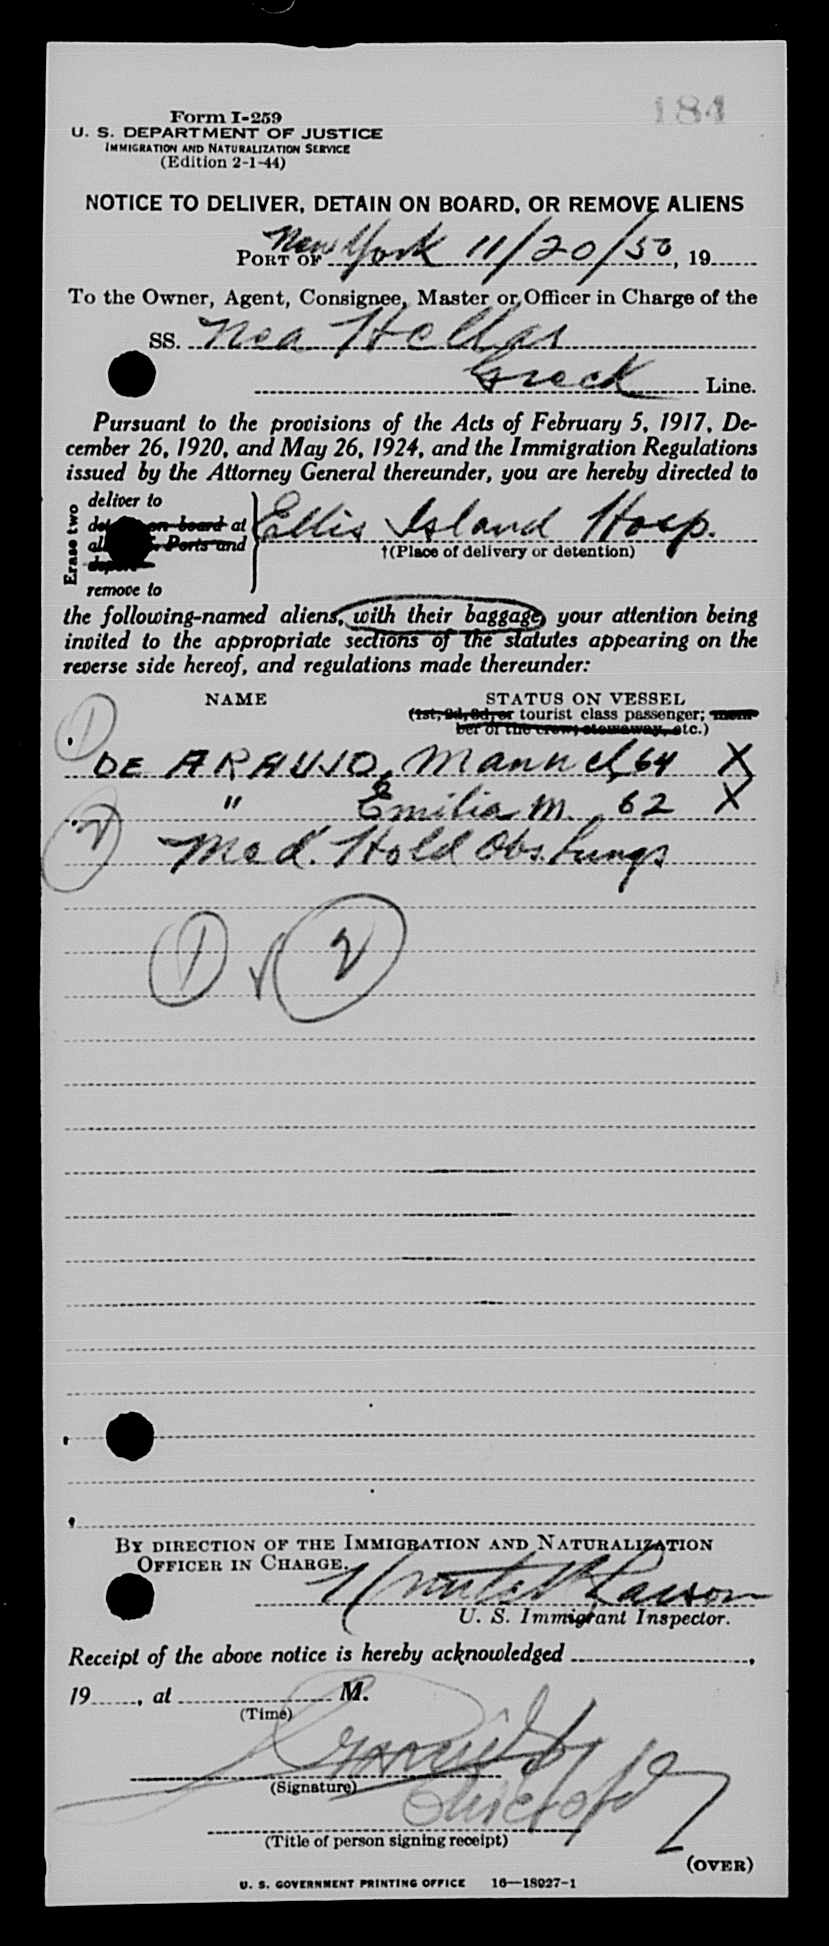 184
Form I-259
U. S. DEPARTMENT OF JUSTICE
IMMIGRATION AND NATURALIZATION SERVICE
(Edition 2-1-44)
NOTICE TO DELIVER, DETAIN ON BOARD, OR REMOVE ALIENS
PORT OF New York 11/20/50, 19
To the Owner, Agent, Consignee, Master or Officer in Charge of the
SS. Nea Hellas
Greek Line.
Pursuant to the provisions of the Acts of February 5, 1917, De-
cember 26, 1920, and May 26, 1924, and the Immigration Regulations
issued by the Attorney General thereunder, you are hereby directed to
Erase two
deliver to
on board at
Ports and
remove to
Ellis Island Hosp.
†(Place of delivery or detention)
the following-named aliens, with their baggage, your attention being
invited to the appropriate sections of the statutes appearing on the
reverse side hereof, and regulations made thereunder:
NAME STATUS ON VESSEL
(1st, 2d, 3d, or tourist class passenger; mem-
ber of the crew, stowaway, etc.)
1
DE ARAUJO, Manuel, 64 X
" Emilia M. 62 X
2 Med. Hold Obs. Lungs
1 & 2
BY DIRECTION OF THE IMMIGRATION AND NATURALIZATION
OFFICER IN CHARGE.
U. S. Immigrant Inspector.
Receipt of the above notice is hereby acknowledged
19, at M.
(Time)
(Signature)
(Title of person signing receipt)
(OVER)
U. S. GOVERNMENT PRINTING OFFICE 16—18027-1